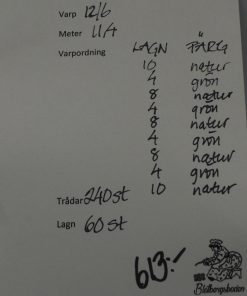 Varp 12/6
Meter 11,4
Varpordning LAGN FÄRG
10 natur
4 grön
8 natur
4 grön
8 natur
4 grön
8 natur
4 grön
Trådar 240 st 10 natur
Lagn 60 st
613:-